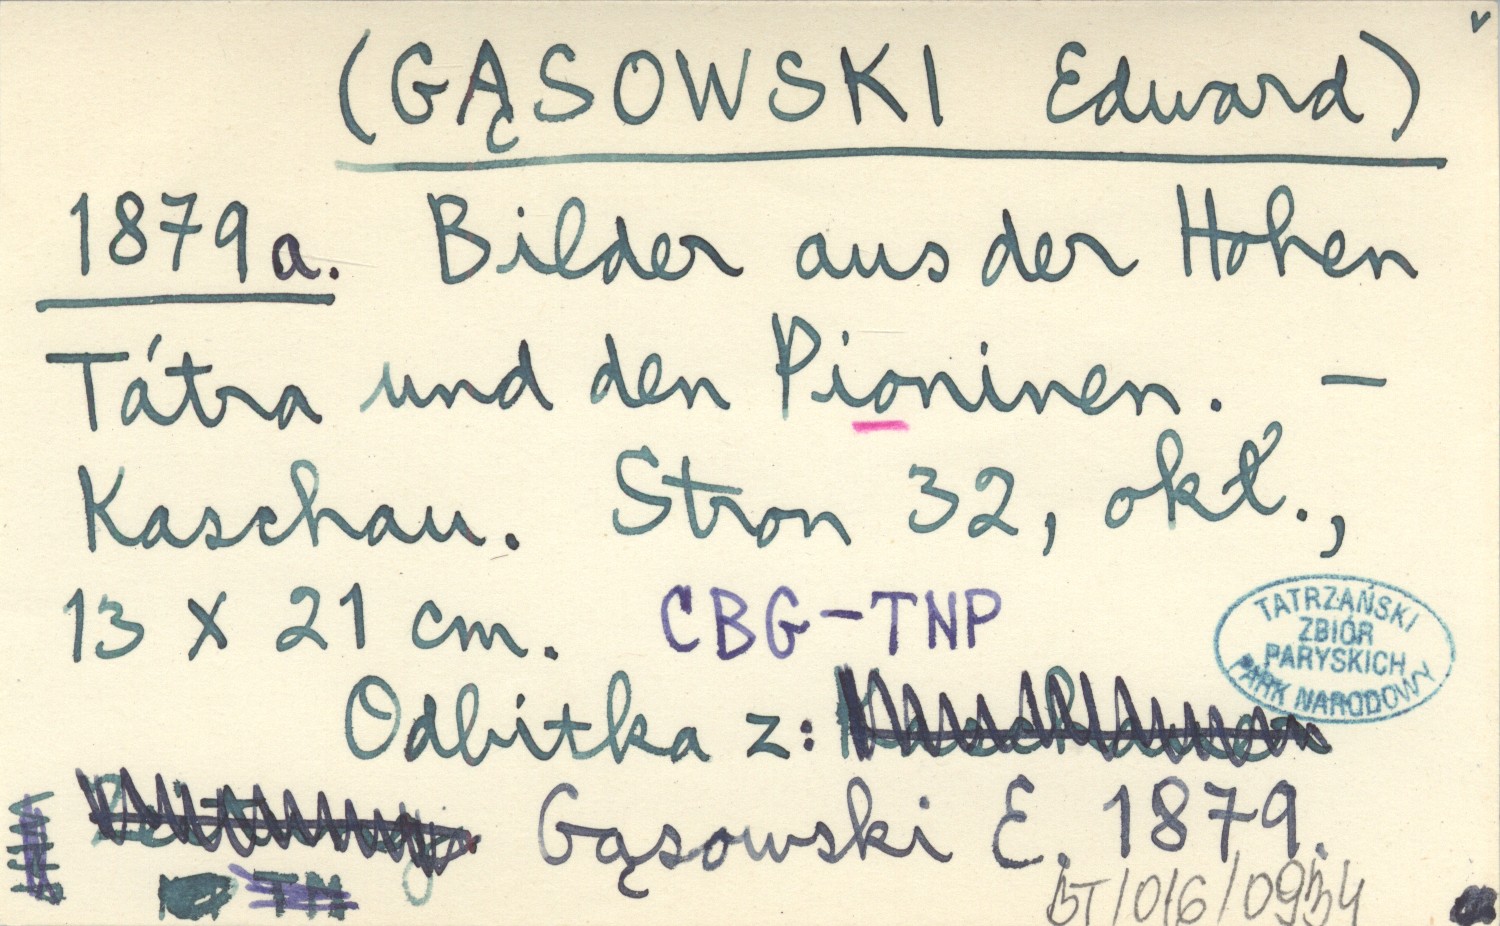 (GĄSOWSKI Edward)
1879a. Bilder aus der Hohen
Tátra und den Pioninen. –
Kaschau. Stron 32, okł.,
13 x 21 cm. CBG–TNP
TATRZAŃSKI
ZBIÓR
PARYSKICH
PARK NARODOWY
Odbitka z:
Gąsowski E. 1879.
TN
BT/016/0954